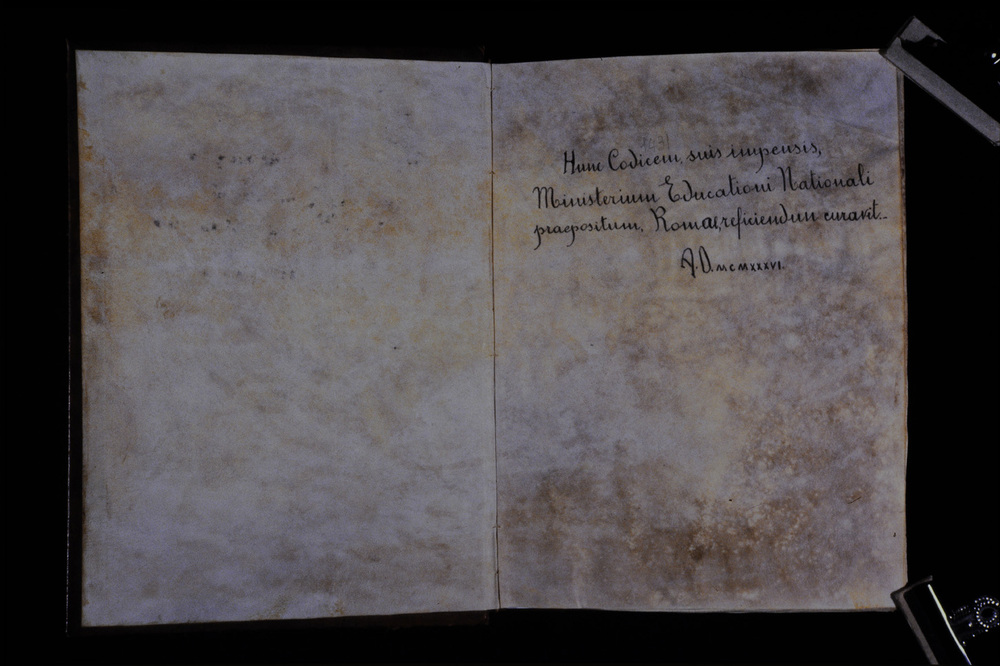 Hunc Codicem, suis impensis,
Ministerium Educationi Nationali
praepositum, Romae, reficiendum curavit.
A.D. MCMXXXVI.